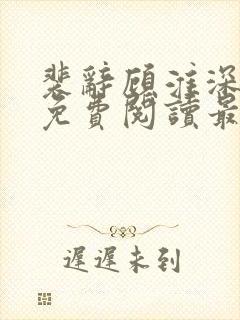 裴辭顧淮深
免費閱讀最
遲遲未到